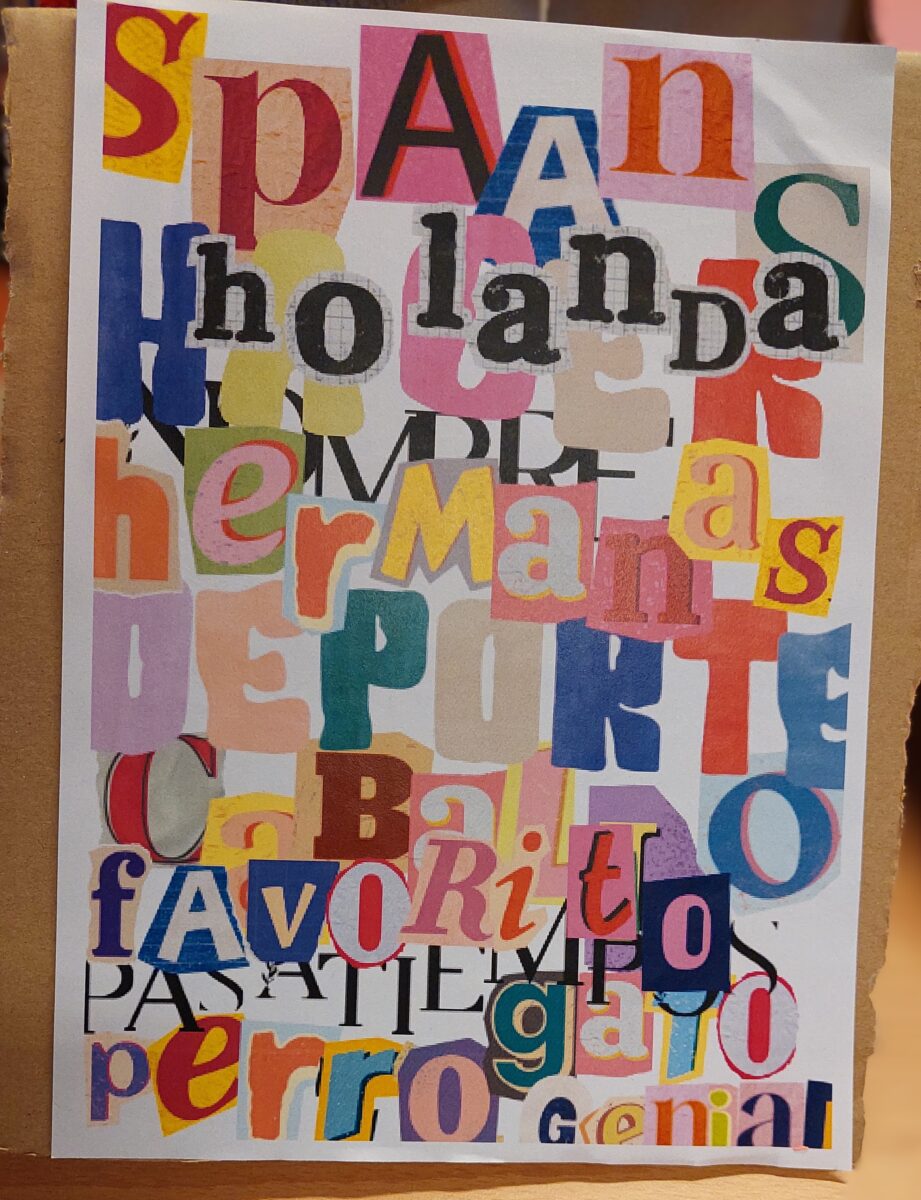 SpAAnS
holanDa
HACER
NOMBRE
herManas
DEPORTE
CaBaLLO
fAvORitO
PASATIEMPOS
perro gato
Genial